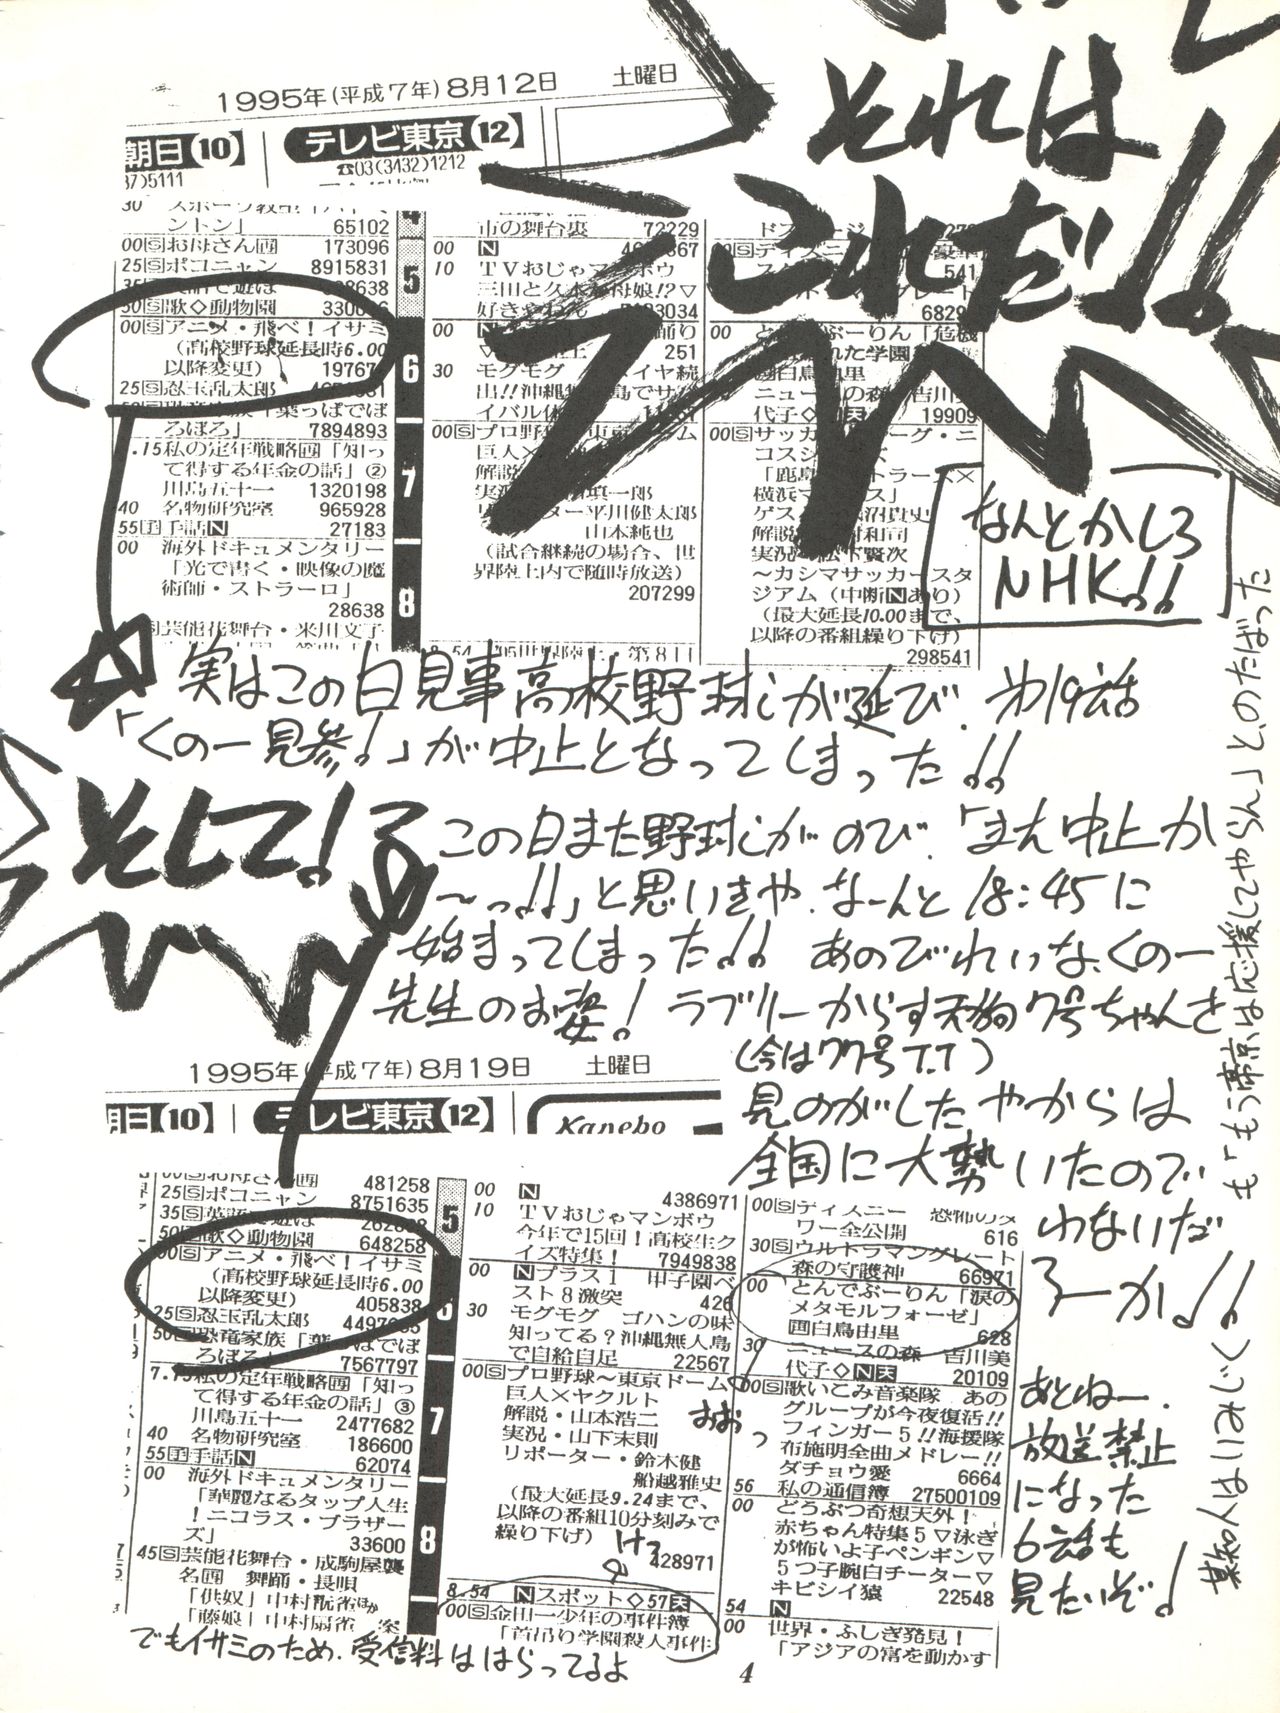 それは
これだ!!
1995年(平成7年)8月12日 土曜日
朝日(10) テレビ東京(12)
37)5111 ☎03(3432)1212
ントン」 65102
00Ⓢお母さん 173096
25Ⓢポコニャン 8915831
50Ⓢ歌◇動物園
00Ⓢアニメ・飛べ!イサミ
(高校野球延長時6.00
以降変更) 19767
25Ⓢ忍玉乱太郎
ろぼろ」 7894893
.15私の定年戦略「知っ
て得する年金の話」②
川島五十一 1320198
40 名物研究室 965928
55手手話N 27183
00 海外ドキュメンタリー
「光で書く・映像の魔
術師・ストラーロ」
28638
芸能花舞台・米川文子
5
6
7
8
市の舞台裏 72229
00 N
10 TVおじゃマンボウ
三田と久本が母娘!?▽
00
251
30 モグモグ
出!!沖縄
イバル
00Ⓢプロ野
巨人×
解説
実況
平川健太郎
山本純也
(試合継続の場合、世
界陸上内で随時放送)
207299
541
6829
00 とんでぶーりん「危機
19909
00Ⓢサッカー
コスシ
「鹿島
横浜マ
ゲス
解説
実況
～カシマサッカースタ
ジアム(中断Nあり)
(最大延長10.00まで、
以降の番組繰り下げ)
298541
なんとかしろ
NHK!!
実はこの日見事高校野球が延び、第19話
「くの一見参!」が中止となってしまった!!
そして!
この日また野球がのび、「また中止か
～っ!!」と思いきや、なーんと18:45に
始まってしまった!! あのびれいな、くの一
先生のお姿! ラブリーからす天狗7号ちゃんを
(今は77号T.T)
見のがしたやからは
全国に大勢いたので
わないだ
ろーか!!
1995年(平成7年)8月19日 土曜日
朝日(10) テレビ東京(12)
Kanebo
481258
25Ⓢポコニャン 8751635
35Ⓢ英語で遊ぼ
50Ⓢ歌◇動物園 648258
00Ⓢアニメ・飛べ!イサミ
(高校野球延長時6.00
以降変更) 405838
25Ⓢ忍玉乱太郎
50Ⓢ恐竜家族「葉っぱでぼ
ろぼろ」 7567797
7.15私の定年戦略「知っ
て得する年金の話」③
川島五十一 2477682
40 名物研究室 186600
55手手話N 62074
00 海外ドキュメンタリー
「華麗なるタップ人生
!ニコラス・ブラザー
ズ」 33600
45Ⓢ芸能花舞台・成駒屋襲
名 舞踊・長唄
「供奴」中村翫雀ほか
「藤娘」中村扇雀
5
6
7
8
00 N 4386971
10 TVおじゃマンボウ
今年で15回!高校生ク
イズ特集! 7949838
00 Nプラス1 甲子園ベ
スト8激突 426
30 モグモグ ゴハンの味
知ってる?沖縄無人島
で自給自足 22567
00Ⓢプロ野球～東京ドーム
巨人×ヤクルト
解説・山本浩二
実況・山下末則
リポーター・鈴木健
船越雅史
(最大延長9.24まで、
以降の番組10分刻みで
繰り下げ)
428971
8.54 Nスポット◇57天
00Ⓢ金田一少年の事件簿
「首吊り学園殺人事件
おおっ
けっ
00Ⓢディズニー 恐怖のタ
ワー全公開 616
30Ⓢウルトラマングレート
森の守護神 66971
00 とんでぶーりん「涙の
メタモルフォーゼ」
画白鳥由里 628
30 ニュースの森 吉川美
代子◇N天 20109
00Ⓢ歌いこみ音楽隊 あの
グループが今夜復活!!
フィンガー5!!海援隊
布施明全曲メドレー!!
ダチョウ愛 6664
56 私の通信簿 27500109
00 どうぶつ奇想天外!
赤ちゃん特集5▽泳ぎ
が怖いよ子ペンギン▽
5つ子腕白チーター▽
キビシイ猿 22548
54 N
00 世界・ふしぎ発見!
「アジアの富を動かす
あとねー、
放送禁止
になった
6話も
見たいぞ!
某知人はいみじく
も「もう帝京は応援してやらん」と、のたばった
でもイサミのため、受信料ははらってるよ
4